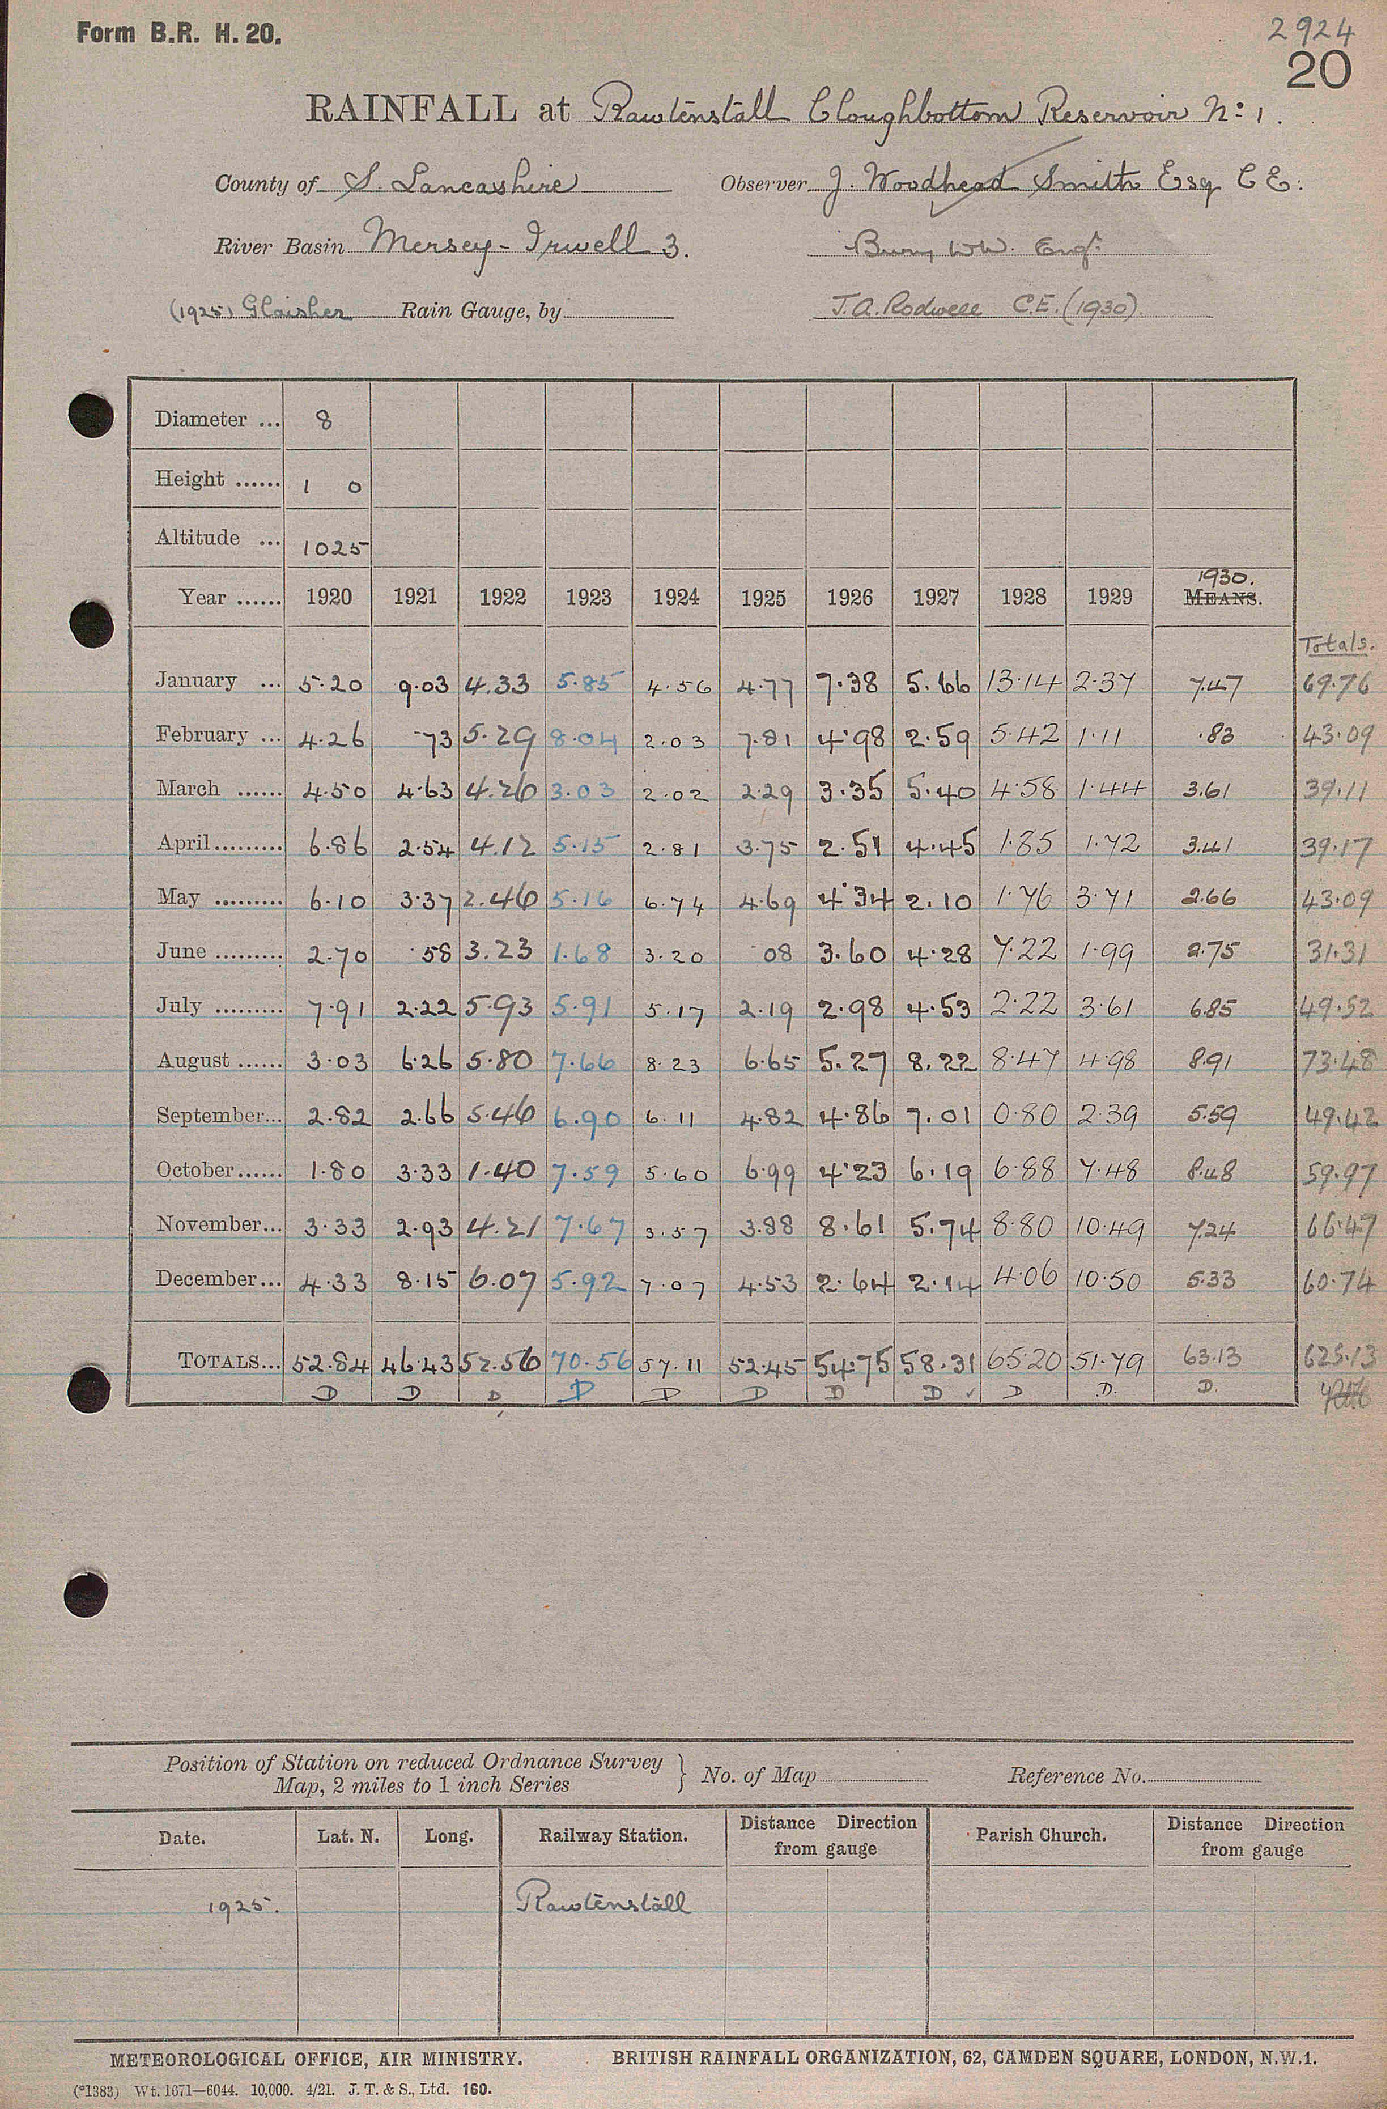 Form B.R. H. 20.
2924
20
RAINFALL at Rawtenstall Cloughbottom Reservoir No 1.
County of S. Lancashire Observer J. Woodhead Smith Esq C E.
River Basin Mersey - Irwell 3. Bury W.W. Engr
(1925) Glaisher Rain Gauge, by J.A. Rodwell C.E. (1930)
Diameter ... 8
Height ...... 1 0
Altitude ... 1025
1930.
Year ...... 1920 1921 1922 1923 1924 1925 1926 1927 1928 1929 MEANS.
Totals.
January ... 5.20 9.03 4.33 5.85 4.56 4.77 7.38 5.66 13.14 2.37 7.47 69.76
February ... 4.26 .73 5.29 8.04 2.03 7.81 4.98 2.59 5.42 1.11 .83 43.09
March ...... 4.50 4.63 4.26 3.03 2.02 2.29 3.35 5.40 4.58 1.44 3.61 39.11
April ......... 6.86 2.54 4.12 5.15 2.81 3.75 2.51 4.45 1.85 1.72 3.41 39.17
May ......... 6.10 3.37 2.46 5.16 6.74 4.69 4.34 2.10 1.76 3.71 2.66 43.09
June ......... 2.70 .58 3.23 1.68 3.20 08 3.60 4.28 7.22 1.99 2.75 31.31
July ......... 7.91 2.22 5.93 5.91 5.17 2.19 2.98 4.53 2.22 3.61 6.85 49.52
August ...... 3.03 6.26 5.80 7.66 8.23 6.65 5.27 8.22 8.47 4.98 8.91 73.48
September... 2.82 2.66 5.46 6.90 6.11 4.82 4.86 7.01 0.80 2.39 5.59 49.42
October ...... 1.80 3.33 1.40 7.59 5.60 6.99 4.23 6.19 6.88 7.48 8.48 59.97
November... 3.33 2.93 4.21 7.67 3.57 3.88 8.61 5.74 8.80 10.49 7.24 66.47
December... 4.33 8.15 6.07 5.92 7.07 4.53 2.64 2.14 4.06 10.50 5.33 60.74
TOTALS... 52.84 46.43 52.56 70.56 57.11 52.45 54.75 58.31 65.20 51.79 63.13 625.13
D D D D D D D D ✓ D D. D.
Position of Station on reduced Ordnance Survey
Map, 2 miles to 1 inch Series } No. of Map Reference No.
Date. Lat. N. Long. Railway Station. Distance Direction from gauge Parish Church. Distance Direction from gauge
1925. Rawtenstall
METEOROLOGICAL OFFICE, AIR MINISTRY. BRITISH RAINFALL ORGANIZATION, 62, CAMDEN SQUARE, LONDON, N.W.1.
(*1383) Wt. 1071—6044. 10,000. 4/21. J. T. & S., Ltd. 160.